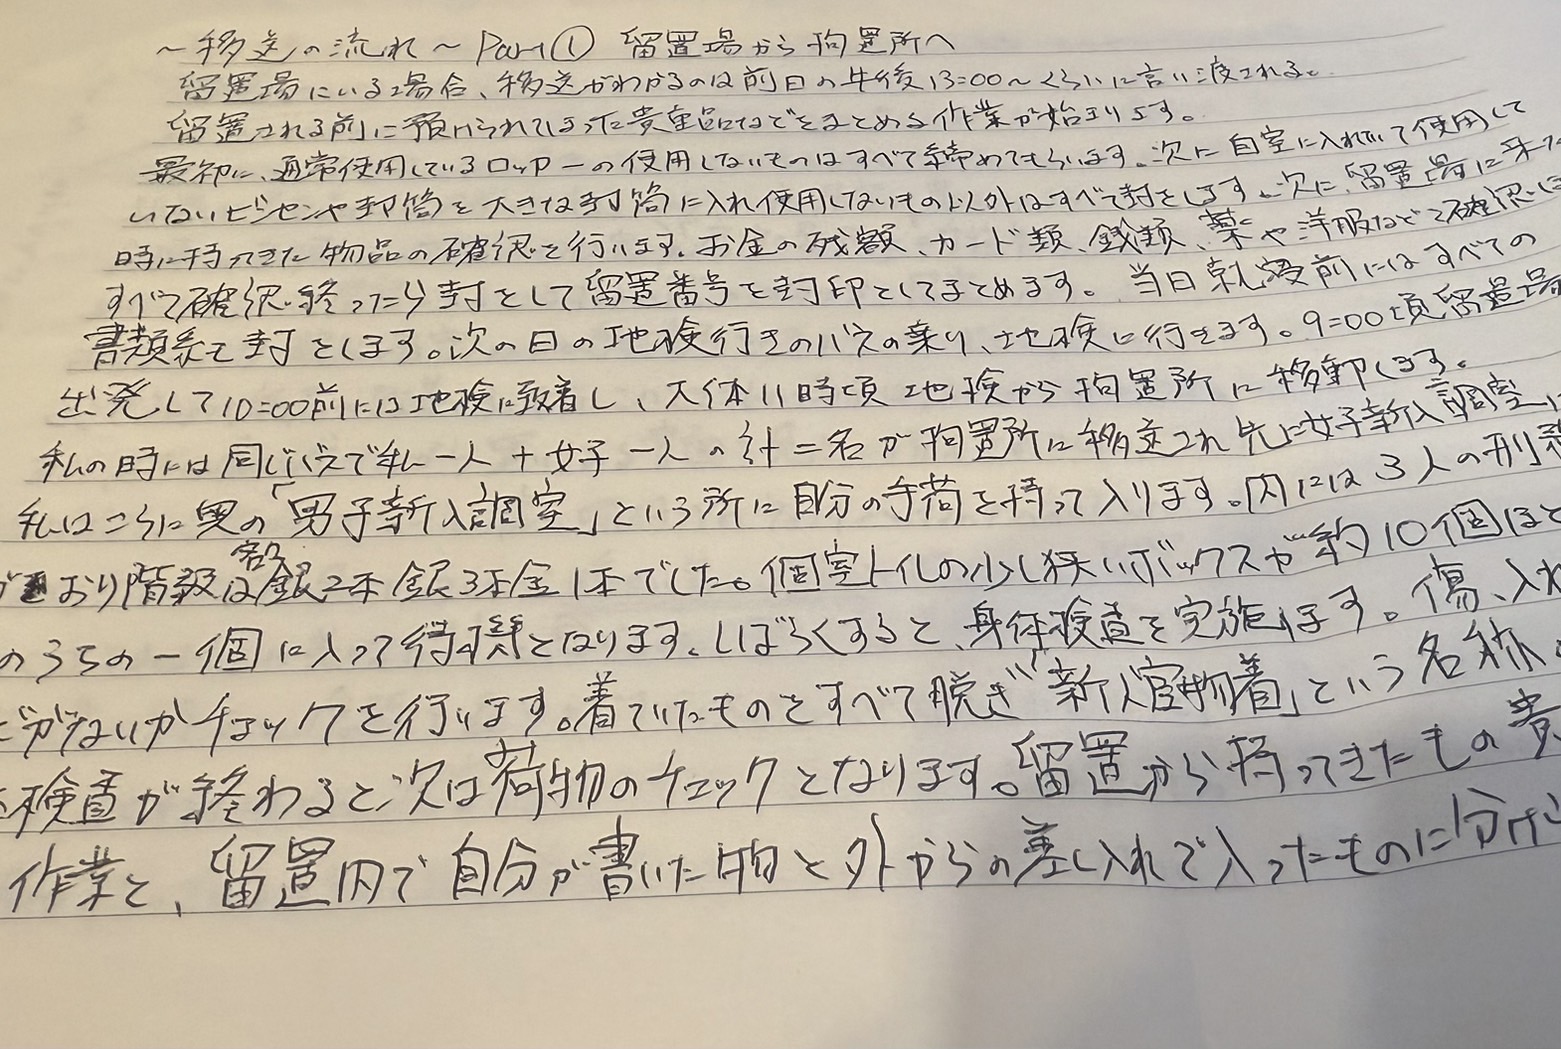 ～移送の流れ～ Part① 留置場から拘置所へ
留置場にいる場合、移送がわかるのは前日の午後13:00～くらいに言い渡される。
留置される前に預けられてしまった貴重品などをまとめる作業が始まります。
最初に、通常使用しているロッカーの使用しないものはすべて締めてもらいます。次に自室に入れていて使用して
いないビンセンや封筒を大きな封筒に入れ使用しないもの以外はすべて封をします。次に、留置場に来た
時に持ってきた物品の確認を行います。お金の残額、カード類、銭類、薬や洋服などを確認し
すべて確認終ったら封をして留置番号を封印としてまとめます。当日就寝前にはすべての
書類系を封をします。次の日の地検行きのバスの乗り、地検に行きます。9:00頃留置場
出発して10:00前には地検に到着し、大体11時頃地検から拘置所に移動します。
私の時には同じバスで私一人+女子一人の計二名が拘置所に移送され先に女子新入調室に
私はさらに奥の「男子新入調室」という所に自分の手荷を持って入ります。内には3人の刑務
がおり階級は各銀2本銀3本金1本でした。個室トイレの少し狭いボックスが約10個ほど
のうちの一個に入って待機となります。しばらくすると、身体検査を実施します。傷、入れ
どがないかチェックを行います。着ていたものをすべて脱ぎ「新入官物着」という名称
検査が終わると次は荷物のチェックとなります。留置から持ってきたもの貴
作業と、留置内で自分が書いた物と外からの差し入れで入ったものに分け